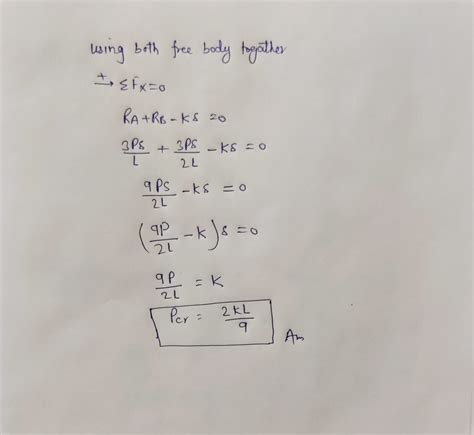 using both free body together
+→ ΣFx=0
RA+RB-Kδ=0
3Pδ/L + 3Pδ/2L - Kδ = 0
9Pδ/2L - Kδ = 0
(9P/2L - K)δ = 0
9P/2L = K
Pcr = 2KL/9
Ans